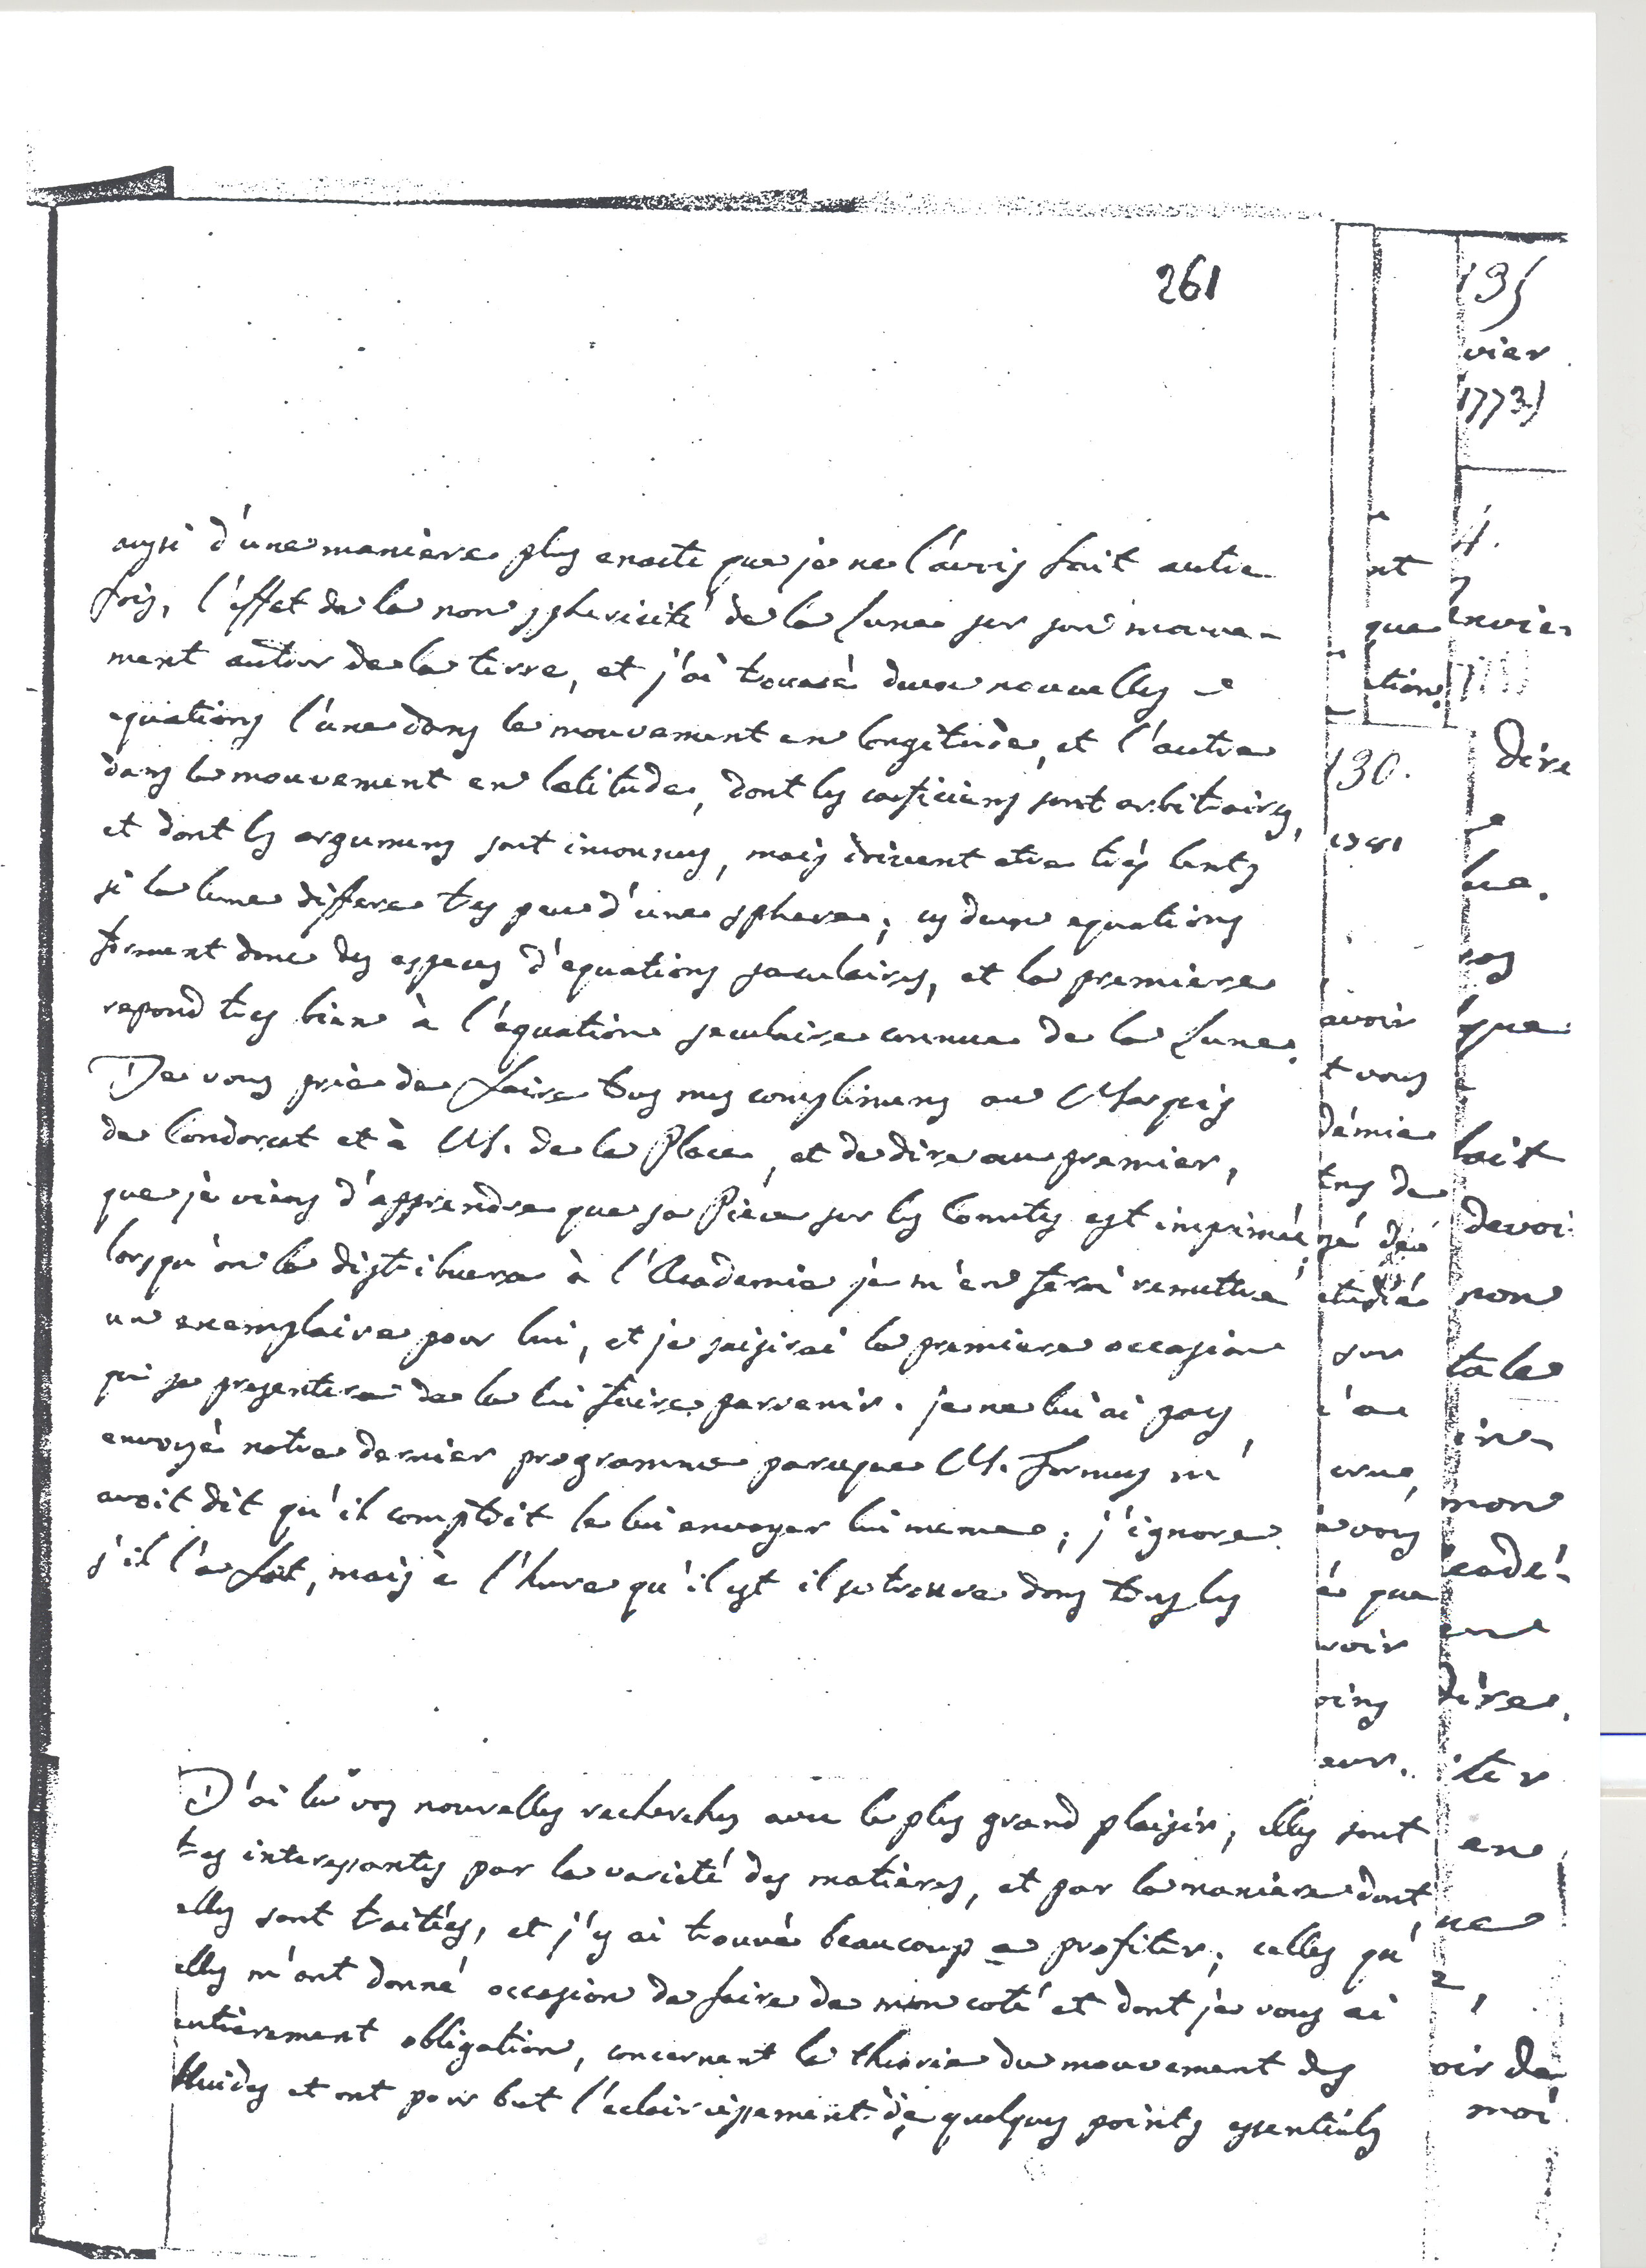 261
aussi d'une maniere plus exacte que je ne l'avois fait autre
fois, l'effet de la non sphericité de la Lune sur son mouve-
ment autour de la terre, et j'ai trouvé deux nouvelles e
quations l'une dans le mouvement en longitude, et l'autre
dans le mouvement en latitude, dont les coeficiens sont arbitraires,
et dont les argumens sont inconnus, mais doivent etre très lents
si la lune differe tres peu d'une sphere; ces deux equations
forment donc des especes d'equations seculaires, et la premiere
repond tres bien à l'équation seculaire connue de la Lune.
Je vous prie de faire tous mes complimens au Marquis
de Condorcet et à M. de la Place, et de dire au premier,
que je viens d'apprendre que sa Piéce sur les Cometes est imprimée;
lorsqu'on la distribuera à l'Academie je m'en ferai remettre
un exemplaire pour lui, et je saisirai la premiere occasion
qui se presentera de la lui faire parvenir. je ne lui ai pas
envoyé notre dernier programme parceque M. Formey m'
avoit dit qu'il comptoit le lui envoyer lui meme; j'ignore
s'il l'a fait, mais à l'heure qu'il est il se trouve dans tous les
J'ai lu vos nouvelles recherches avec le plus grand plaisir; elles sont
tres interessantes par la varieté des matières, et par la maniere dont
elles sont traitées, et j'y ai trouvé beaucoup a profiter; celles qu'
elles m'ont donné occasion de faire de mon coté et dont je vous ai
entierement obligation, concernent la théorie du mouvement des
fluides et ont pour but l'eclaircissement de quelques points essentiels
nt
que
ation.
130.
1781
avoir
t vous
démie
tems de
etudié
sur
l'a
crue,
avois
é que
voir
oins
eur.
135
vier
1773)
4.
envie
dire
que
fait
devoi
non
tale
in-
mon
cadé-
une
dire.
ter
en
ne
2,
oir de
moi